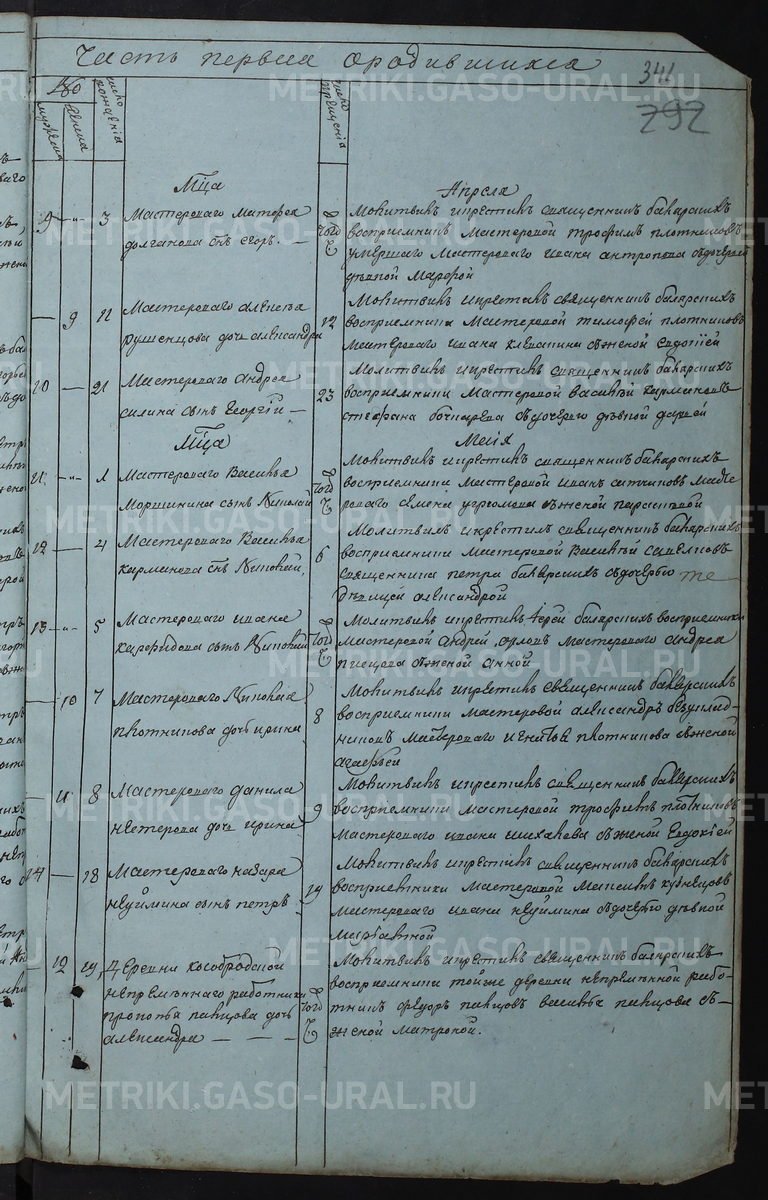 Часть первая о родившихся
341
292
№
мужеска
женска
число рождения
число крещения
Мца
Апреля
9 -„- 3
Мастероваго Матфея
долганова снъ егоръ. —
Того ж
Молитвилъ икрестилъ священникъ бакарскихъ
восприемникъ Мастеровой трофимъ плотниковъ
умершаго Мастероваго ивана антропова сдочерью
девкой Марфой
— 9 11
Мастероваго алексея
дочь александра
12
Молитвилъ икрестилъ священникъ бакарскихъ
восприемники Мастеровой тимофей плотниковъ
Мастероваго ивана сженой Евдокией
10 — 21
Мастероваго андрея
силина сынъ Георгий —
23
Молитвилъ икрестилъ священникъ бакарскихъ
восприемники Мастеровой василей кармановъ
стефана бочкарева сдочерью девкой дарьей
Мца
Маия
11 -„- 1
Мастероваго Василья
Моршинина сынъ Николай
Того ж
Молитвилъ икрестилъ священникъ бакарскихъ
восприемники мастеровой иванъ Масте
роваго семена сженой парасковой
12 — 4
Мастероваго Василья
карманова снъ Николай,
6
Молитвилъ икрестилъ священникъ бакарскихъ
восприемники Мастеровой Василей
священника петра бакарскихъ сдочерью
девицей александрой
13 -„- 5
Мастероваго ивана
сынъ Николай
Того ж
Молитвилъ икрестилъ Иерей бакарскихъ восприемники
мастеровой андрей орловъ мастероваго андрея
сженой анной
— 10 7
Мастероваго Николая
плотникова дочь ирина
8
Молитвилъ икрестилъ священникъ бакарскихъ
восприемники мастеровой александръ
мастероваго игнатья плотникова сженой
агафьей
— 11 8
Мастероваго данила
нестерова дочь ирина
9
Молитвилъ икрестилъ священникъ бакарскихъ
восприемники мастеровой трофимъ плотниковъ
Мастероваго ивана сженой Евдокией
14 — 18
Мастероваго назара
неуймина сынъ петръ
19
Молитвилъ икрестилъ священникъ бакарскихъ
восприемники мастеровой Максимъ кузнецовъ
мастероваго ивана неуймина сдочерью девкой
— 12 19
Деревни кособродской
непременнаго работника
прокопья певцова дочь
александра — — —
Того ж
Молитвилъ икрестилъ священникъ бакарскихъ
восприемники тойже деревни непременной рабо-
тникъ федоръ певцовъ василья певцова с-
женой матроной.
METRIKI.GASO-URAL.RU